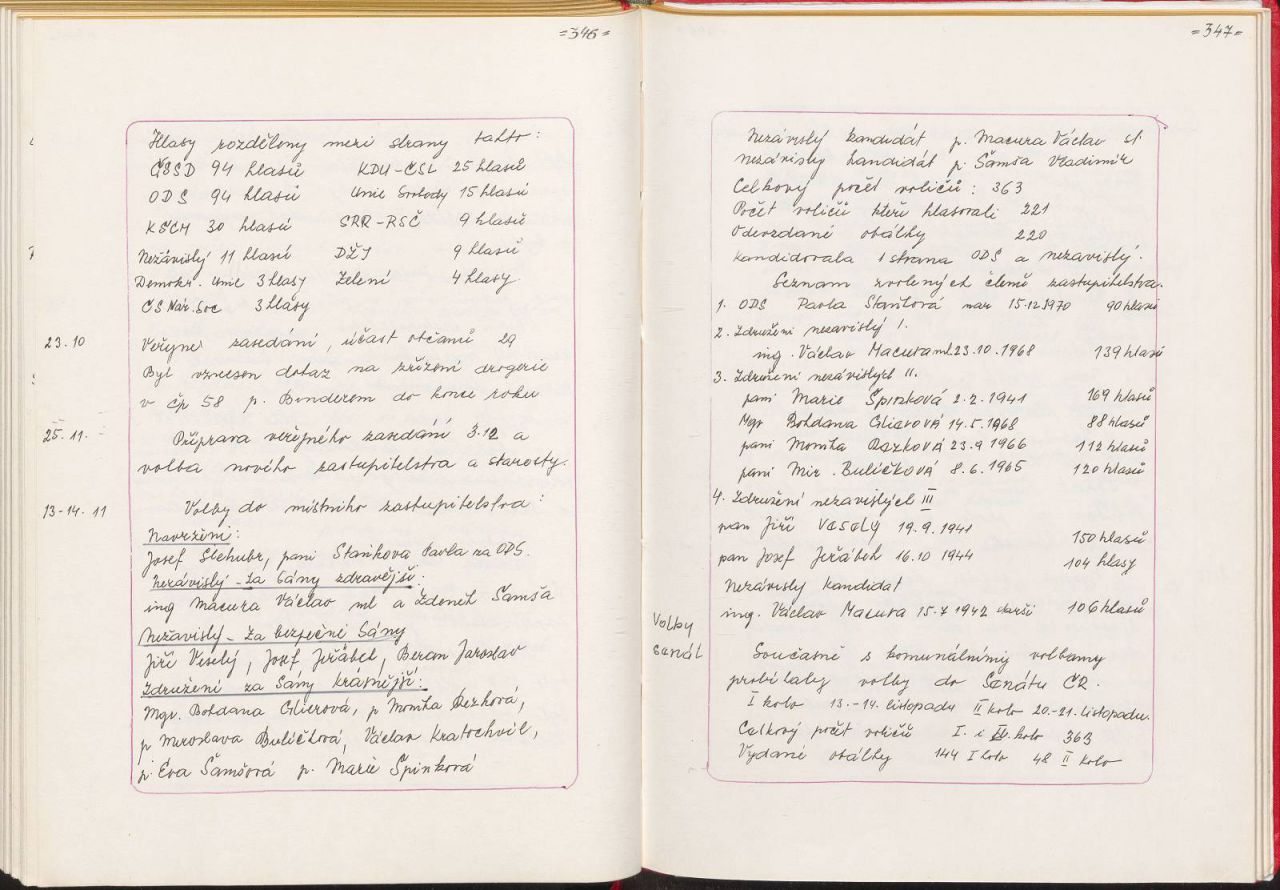 =346=
Hlasy rozděleny mezi strany takto:
ČSSD 94 hlasů KDU-ČSL 25 hlasů
ODS 94 hlasů Unie Svobody 15 hlasů
KSČM 30 hlasů SRR-RSČ 9 hlasů
Nezávislý 11 hlasů DŽJ 9 hlasů
Demokr. Unie 3 hlasy Zelení 4 hlasy
ČS Nár. Soc 3 hlasy
23.10 Veřejné zasedání, účast občanů 29
Byl vznesen dotaz na zřízení drogerie
v čp 58 p. Binderem do konce roku
25.11. Příprava veřejného zasedání 3.12 a
volba nového zastupitelstva a starosty.
13-14.11 Volby do místního zastupitelstva:
Navrženi:
Josef Slehubr, paní Staňkova Pavla za ODS.
Nezávislý - Za Sány zdravější:
ing Macura Václav ml a Zdeněk Šamša
Nezavislý - Za bezpečné Sány
Jiří Veselý, Josef Jeřábek, Beran Jaroslav
Združení za Sány krásnější:
Mgr. Bohdana Glierová, p Monika Dezková,
p Miroslava Buličková, Václav Kratochvíl,
p. Eva Šamšová p. Marie Špinková
=347=
Nezávislý kandidát p. Macura Václav st
nezávislý kandidát p. Šamša Vladimír
Celkový počet voličů: 363
Počet voličů kteří hlasovali 221
Odevzdané obálky 220
Kandidovala 1 strana ODS a nezavislý.
Seznam zvolených členů zastupitelstva.
1. ODS Pavla Staňková nar 15.12.1970 90 hlasů
2. Združení nezavislý I.
ing. Václav Macura ml. 23.10.1968 139 hlasů
3. Združení nezávislých II.
paní Marie Špinková 2.2.1941 169 hlasů
Mgr Bohdana Glierová 14.5.1968 88 hlasů
paní Monika 23.9 1966 112 hlasů
paní Mir. Buličková 8.6.1965 120 hlasů
4. Združení nezavislých III
pan Jiří Veselý 19.9.1941 150 hlasů
pan Josef Jeřábek 16.10 1944 104 hlasy
Nezávislý kandidat
ing. Václav Macura 15.7 1942 starší 106 hlasů
Volby
senát
Současně s komunálními volbamy
probíhaly volby do Senátu ČR.
I kolo 13.-14. listopadu II kolo 20.-21. listopadu.
Celkový počet voličů I. i II. kolo 363
Vydané obálky 144 I kolo 48 II kolo